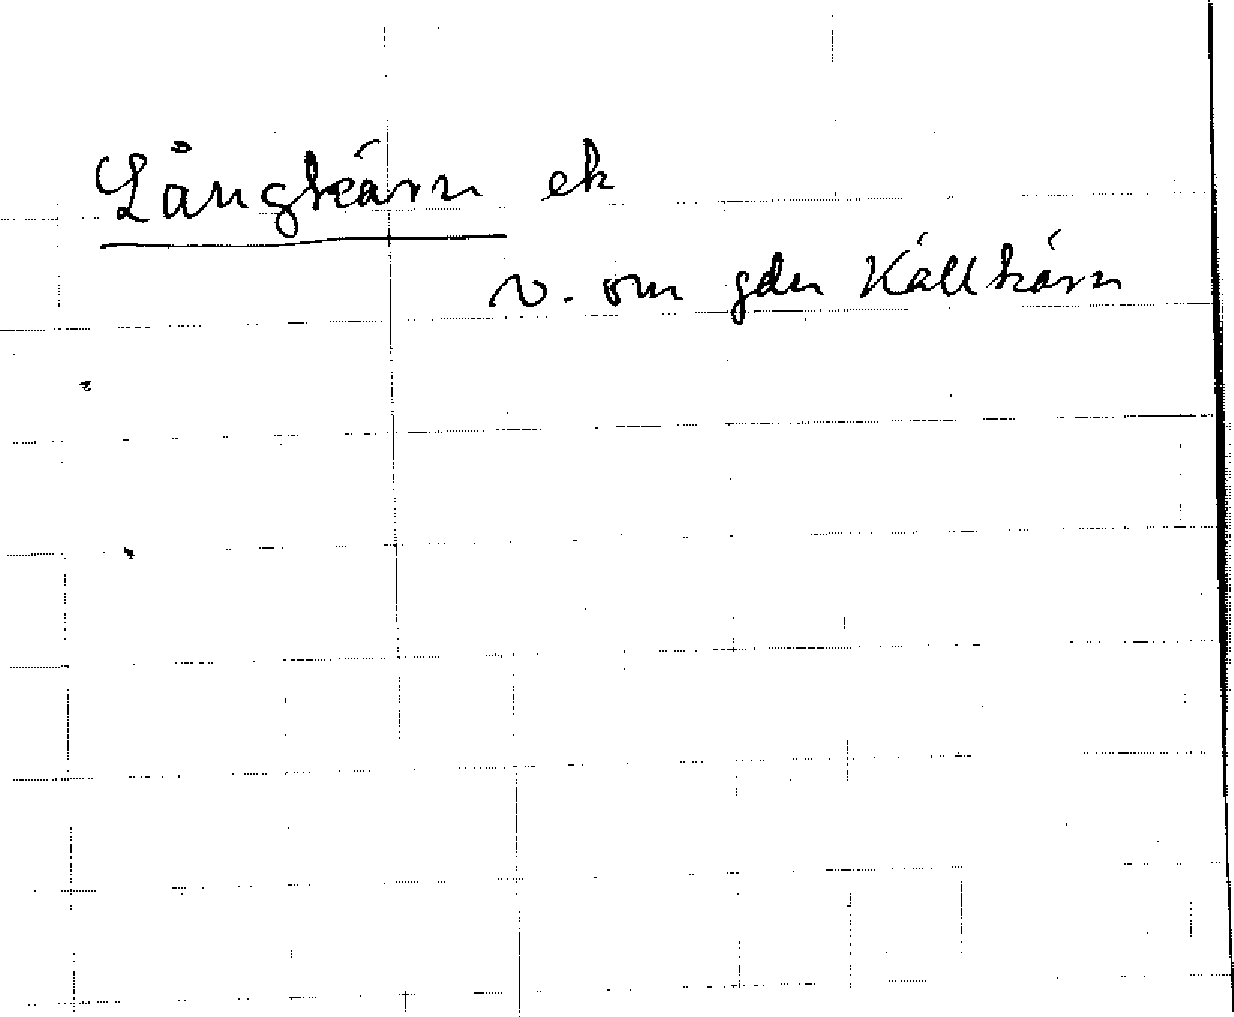 Långkärn ek
v. om gdn Källkärn